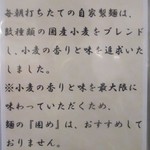 毎朝打ちたての自家製麺は、
数種類の国産小麦をブレンド
し、小麦の香りと味を追求いた
しました。
※小麦の香りと味を最大限に
味わっていただくため、
麺の『固め』は、おすすめして
おりません。